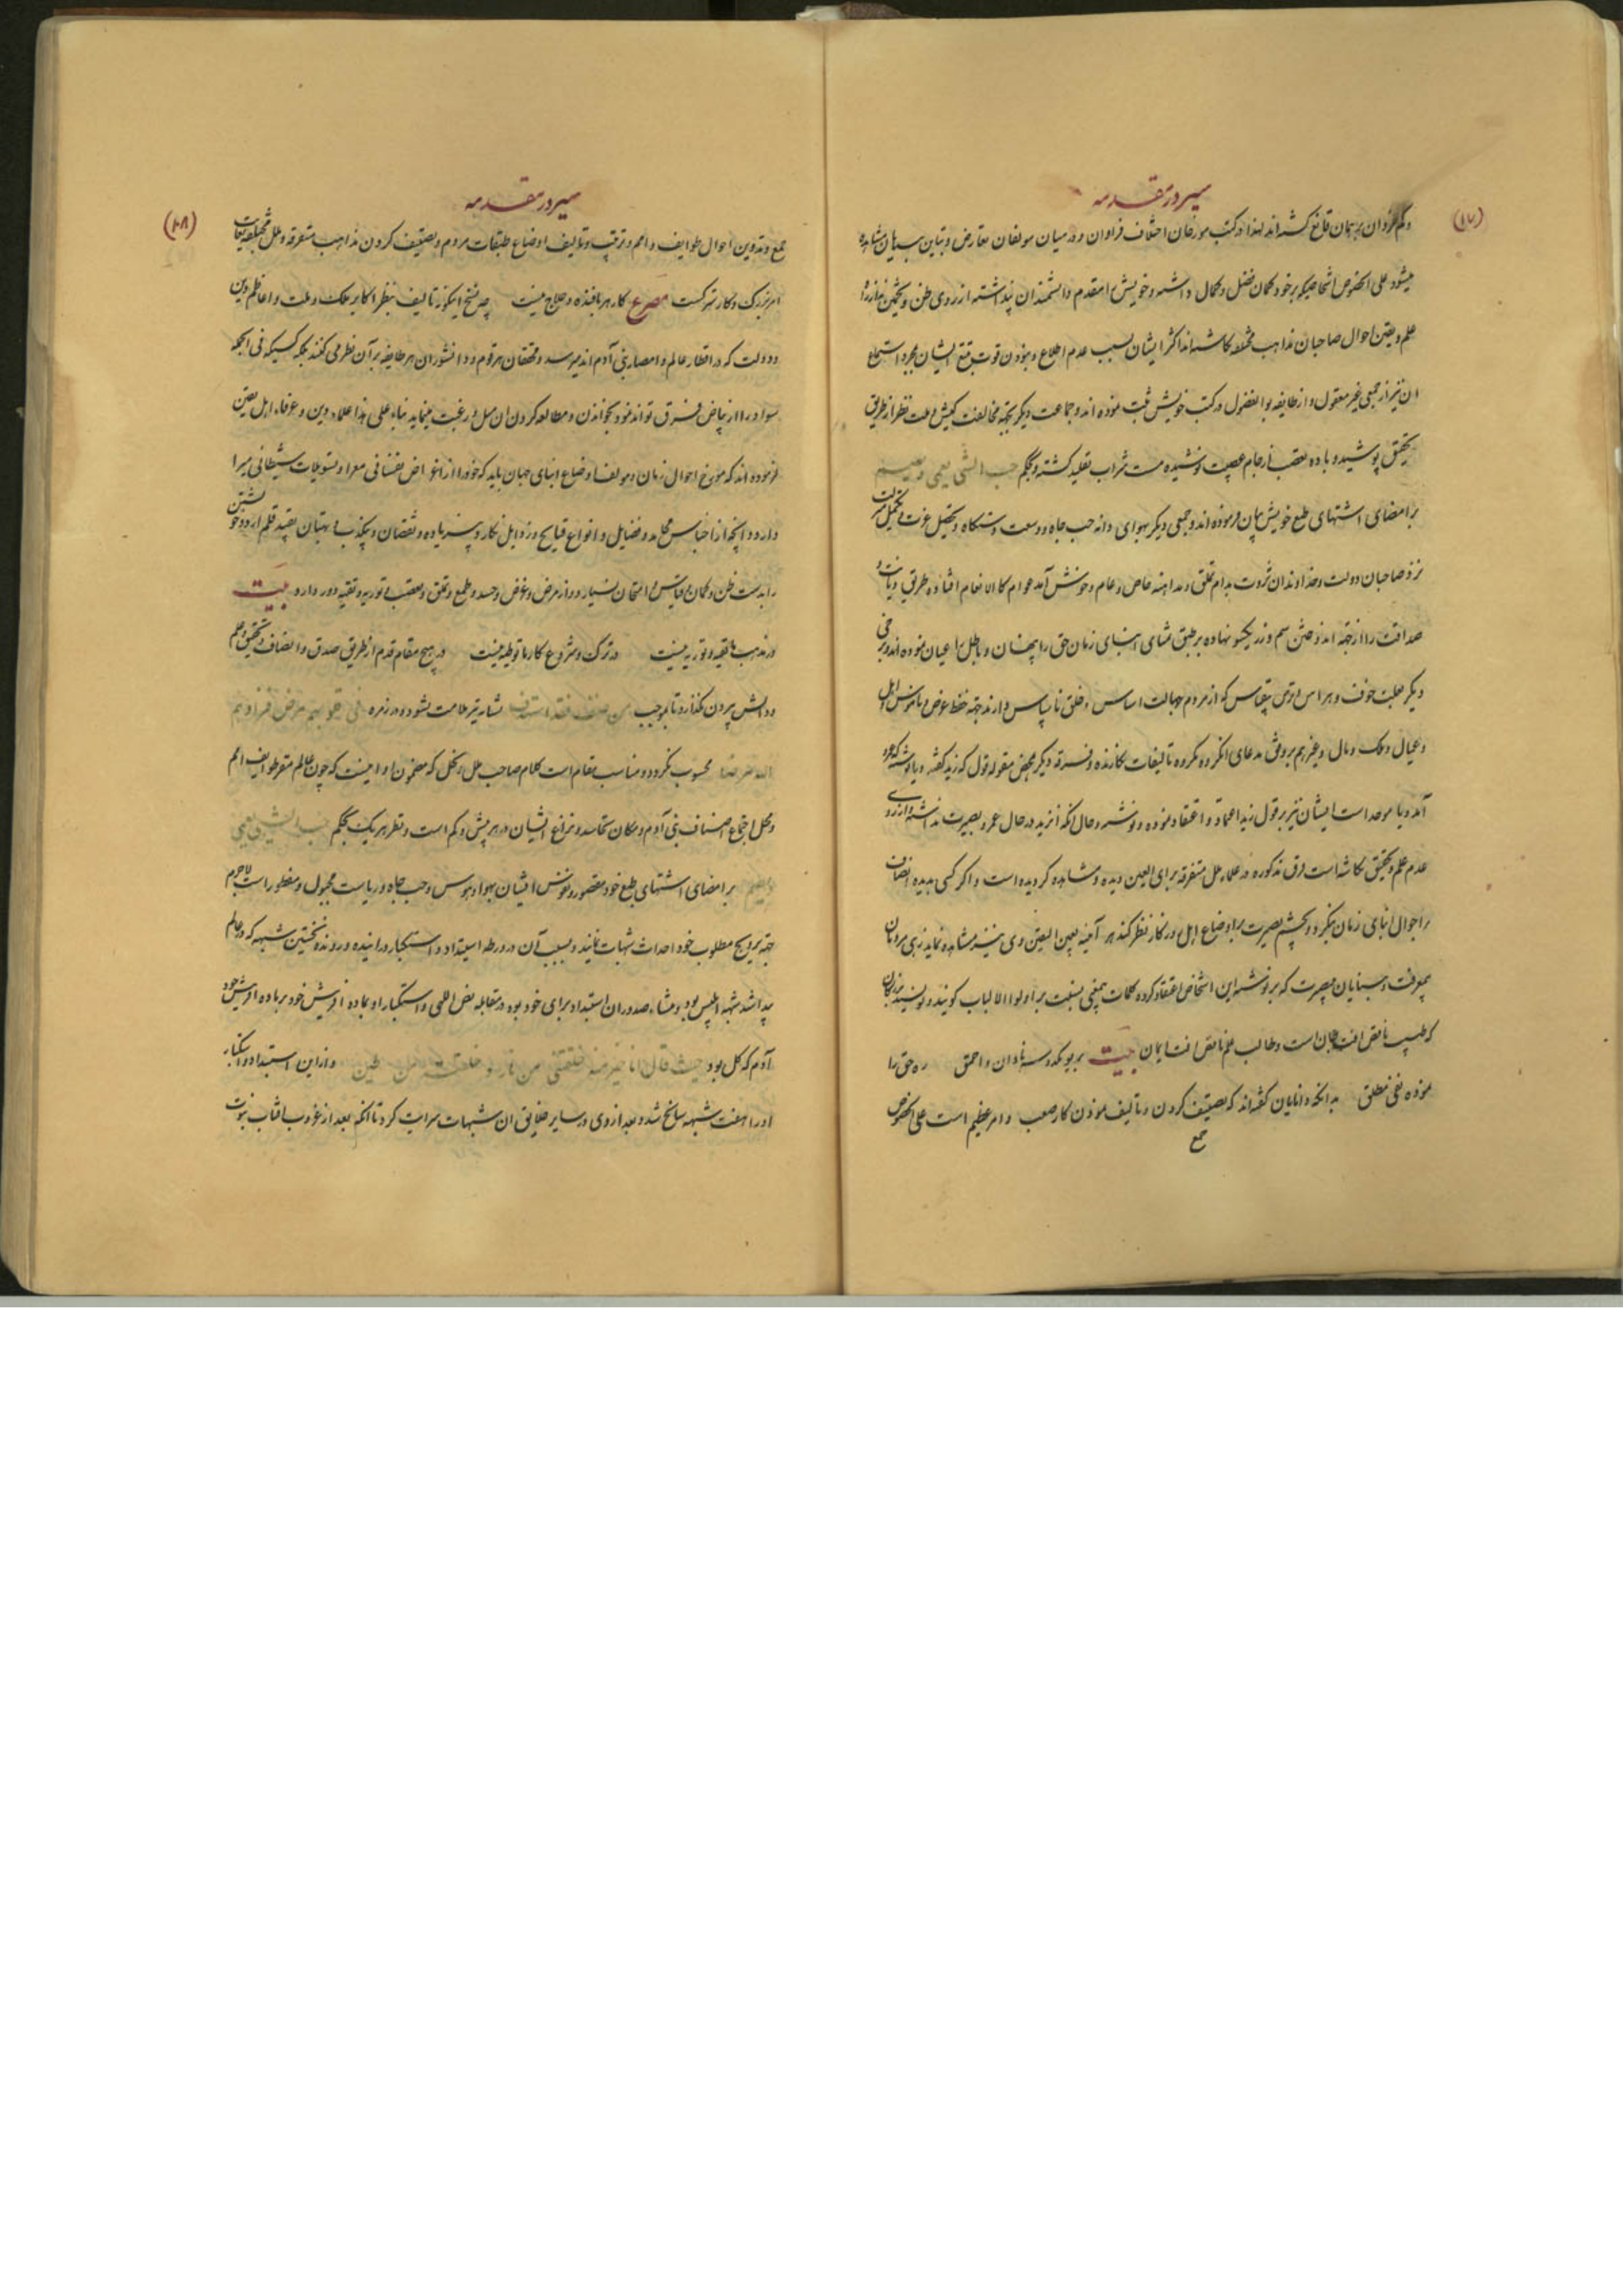 سیر در مقدمه
(۱۷)
وکم کردان برهمان قانع کشته‌اند لهذا در کتب مورخان اختلاف فراوان و در میان مولفان تعارض و تباین بی‌پایان مشاهده
میشود علی الخصوص اشخاصیکه بر خود کمان فضل و کمال داشته و خویش را مقدم دانشمندان پنداشته از روی ظن و تخمین نه از راه
علم و یقین احوال صاحبان مذاهب مختلفه نکاشته‌اند اکثر ایشان بسبب عدم اطلاع و نبودن قوت تتبع ایشان بمجرد استماع
آن نیز از جمعی غیر معقول و از طایفه بوالفضول در کتب خویش ثبت نموده‌اند و جماعت دیکر بجهة مخالفت کیش و ملت نظر از طریق
تحقیق پوشیده و باده تعصب از جام عصبیت نوشیده مست شراب تقلید کشته و بحکم حب الشی یعمی و یصم
بر امضای اشتهای طبع خویش بیان فرموده‌اند و جمعی دیکر بهوای دانه حب جاه و وسعت دستکاه و تحصیل عزت و تکمیل
نزد صاحبان دولت و خداوندان ثروت بدام تملق و مداهنه خاص و عام و خوش آمد عوام کالانعام افتاده طریق دیانت و
صداقت را از جهة اندوختن سیم و زر یکسو نهاده بر طبق تمنای ابنای زمان حق را پنهان و باطل را عیان نموده‌اند و برخی
دیکر بعلت خوف و هراس از قوی بیقیاس که از مردم جهالت اساس و خلق ناسپاس دارند جهة حفظ عرض و ناموس اهل
و عیال و ملک و مال و غیرهم بر وفق مدعای آنکروه مکروه تالیفات نکارنده و فرقه دیکر بمحض مقوله قول که زید کفته و یا نوشته که عمرو
آمد و یا موحد است ایشان نیز بر قول زید اعتماد و اعتقاد نموده و نوشته و حال آنکه آن زید در حال عمرو بصیرت نداشته و از روی
عدم علم و تحقیق نکاشته است فرق مذکوره در علماء ملل متفرقه برای العین دیده و مشاهده کردیده است و اکر کسی بدیده انصاف
بر احوال ابنای زمان بنکرد و بچشم بصیرت بر اوضاع اهل روزکار نظر کند هر آینه بعین الیقین وی نیز مشاهده نماید زهی مردمان
بیمعرفت و بینایان بیبصیرت که بر نوشته این اشخاص اعتقاد کرده کلمات بیمعنی بنسبت بر اولوا الالباب کویند و نویسند بزرکان
که طبیب ناقص آفت جان است و طالب علم ناقص آفت ایمان بیت بر بو کدوسه نادان و احمق ره حق را
نموده نفی مطلق بدانکه دانایان کفته‌اند که تصنیف کردن و تالیف نمودن کار صعب و امر عظیم است علی الخصوص
جمع
سیر در مقدمه
(۱۸)
جمع و تدوین احوال طوایف و امم و ترتیب و تالیف اوضاع طبقات مردم و تصنیف کردن مذاهب متفرقه و ملل مختلفه
امر بزرک و کار سترکست مصرع کار هر بافنده و حلاج نیست چه نسخ اینکونه تالیف بنظر اکابر ملک و ملت و اعاظم دین
و دولت که در اقطار عالم و امصار بنی آدم‌اند میرسد و محققان هر قوم و دانشوران هر طایفه بر آن نظر می کنند بلکه کسیکه فی الجمله
سواد را از بیاض فرق تواند نمود بخواندن و مطالعه کردن آن میل و رغبت مینماید بناء علی هذا علماء دین و عرفاء اهل یقین
فرموده‌اند که مورخ احوال زمان و مولف اوضاع ابنای جهان باید که خود را از اغراض نفسانی معرا و تسویلات شیطانی مبرا
دارد و آنچه از اجناس محامد و فضایل و انواع قبایح و رذایل نکارد بی زیاده و نقصان و بی کذب و بهتان بقید قلم آرد و خویشتن
را بدست ظن و کمان و قیاس و امتحان نسپارد و از مرض و غرض و حسد و طمع و تملق و تعصب و توریه و تقیه دور دارد بیت
در مذهب ما تقیه و توریه نیست در ترک و شروع کار ما توطیه نیست در هیچ مقام قدم از طریق صدق و انصاف و تحقیق و علم
و دانش بیرون نکذارد تا بموجب من صنف فقد استهدف نشانه تیر ملامت نشود و در زمره فی قلوبهم مرض فزادهم
الله مرضا محسوب نکردد و مناسب مقام است کلام صاحب ملل و نحل که مضمون او اینست که چون عالم مقر طوایف امم
و محل اجتماع اصناف بنی آدم و مکان تحاسد و نزاع ایشان در هر بیش و کم است و نظر هر یک بحکم حب الشی یعمی
و یصم بر امضای اشتهای طبع خود مقصور و نفوس ایشان بهوا و هوس و حب جاه و ریاست مجبول و مفطور است لاجرم
جهة ترویج مطلوب خود احداث شبهات نمایند و بسبب آن در ورطه استبداد و استکبار درآیند و روند نخستین شبهه که در عالم
پیدا شد شبهه ابلیس بود و منشاء صدور آن استبداد برای خود بوده در مقابله نص الهی و استکبار او بماده آفرینش خود بر ماده آفرینش وجود
آدم که کل بود حیث قال انا خیر منه خلقتنی من نار و خلقته من طین و از این استبداد و استکبار
او را هفت شبهه سانح شد و بعد از وی در سایر خلایق آن شبهات سرایت کرد تا آنکه بعد از غروب آفتاب نبوت